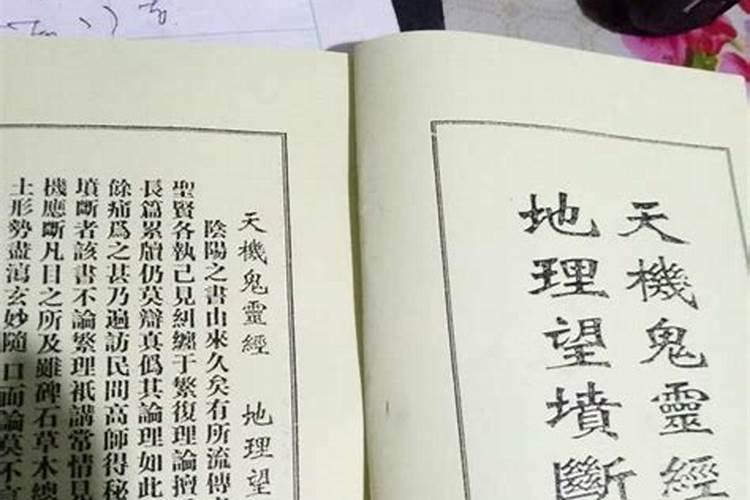 天機鬼靈經
地理望墳斷
天機鬼靈經 地理望
陰陽之書由來久矣有所流傳
聖賢各執己見糾纏于繁復理論擅
長篇累牘仍莫辯真僞其論理如此
餘痛爲之甚乃遍訪民間高師得秘
墳斷者該書不論繁理祇講常情見
機應斷凡目之所及雖碑石草木總
土形勢盡洩玄妙隨口而論莫不